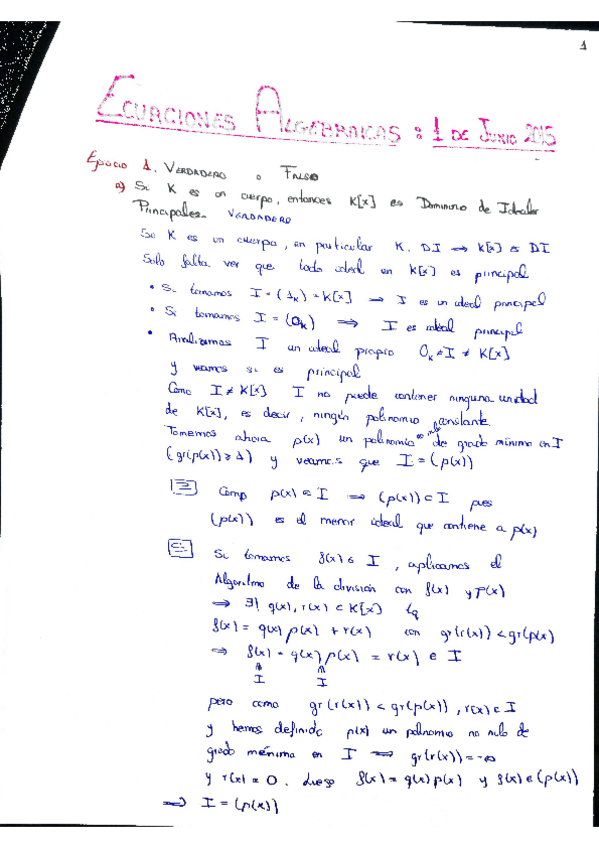 1
ECUACIONES ALGEBRAICAS : 1 DE JUNIO 2015
Ejercicio 1. VERDADERO o FALSO
a) Si K es un cuerpo, entonces K[x] es Dominio de Ideales
Principales. VERDADERO
Si K es un cuerpo, en particular K. DI ⟹ K[x] es DI
Sólo falta ver que todo ideal en K[x] es principal
• Si tomamos I = (1_K) = K[x] ⟹ I es un ideal principal
• Si tomamos I = (0_K) ⟹ I es ideal principal
• Analizamos I un ideal propio 0_K ≠ I ≠ K[x]
y veamos si es principal
Como I ≠ K[x] I no puede contener ninguna unidad
de K[x], es decir, ningún polinomio constante.
Tomemos ahora p(x) un polinomio de grado mínimo en I
(gr(p(x)) ≥ 1) y veamos que I = (p(x))
⊇ Como p(x) ∈ I ⟹ (p(x)) ⊂ I pues
(p(x)) es el menor ideal que contiene a p(x)
⊆ Si tomamos f(x) ∈ I, aplicamos el
Algoritmo de la división con f(x) y p(x)
⟹ ∃! q(x), r(x) ∈ K[x] tq
f(x) = q(x) p(x) + r(x) con gr(r(x)) < gr(p(x))
⟹ f(x) - q(x) p(x) = r(x) ∈ I
I I
pero como gr(r(x)) < gr(p(x)), r(x) ∈ I
y hemos definido p(x) un polinomio no nulo de
grado mínimo en I ⟹ gr(r(x)) = -∞
y r(x) = 0. Luego f(x) = q(x) p(x) y f(x) ∈ (p(x))
⟹ I = (p(x))